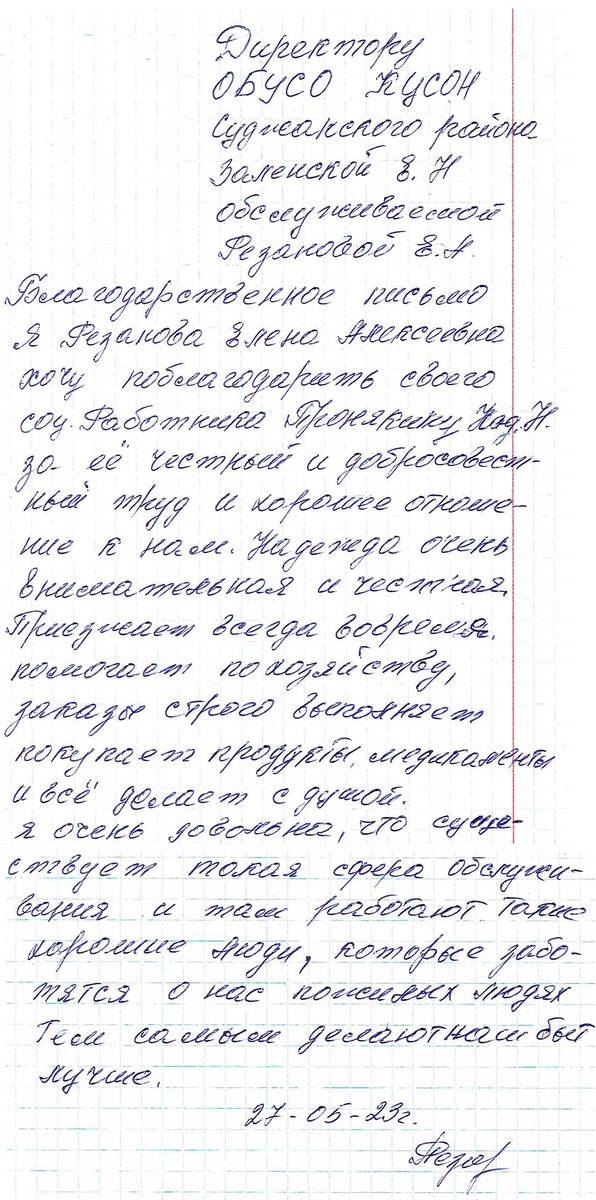 Директору
ОБУСО КЦСОН
Суджанского района
Заленской Е. Н
обслуживаемой
Резановой Е.А.
Благодарственное письмо
Я Резанова Елена Алексеевна
хочу поблагодарить своего
соц. Работника Пронякину Над. Н.
за её честный и добросовест-
ный труд и хорошее отноше-
ние к нам. Надежда очень
внимательная и честная.
Приезжает всегда вовремя.
помогает по хозяйству,
заказы строго выполняет
покупает продукты, медикаменты
и всё делает с душой.
я очень довольна, что суще-
ствует такая сфера обслужи-
вания и там работают такие
хорошие люди, которые забо-
тятся о нас пожилых людях
Тем самым делают наш быт
лучше.
27-05-23г.